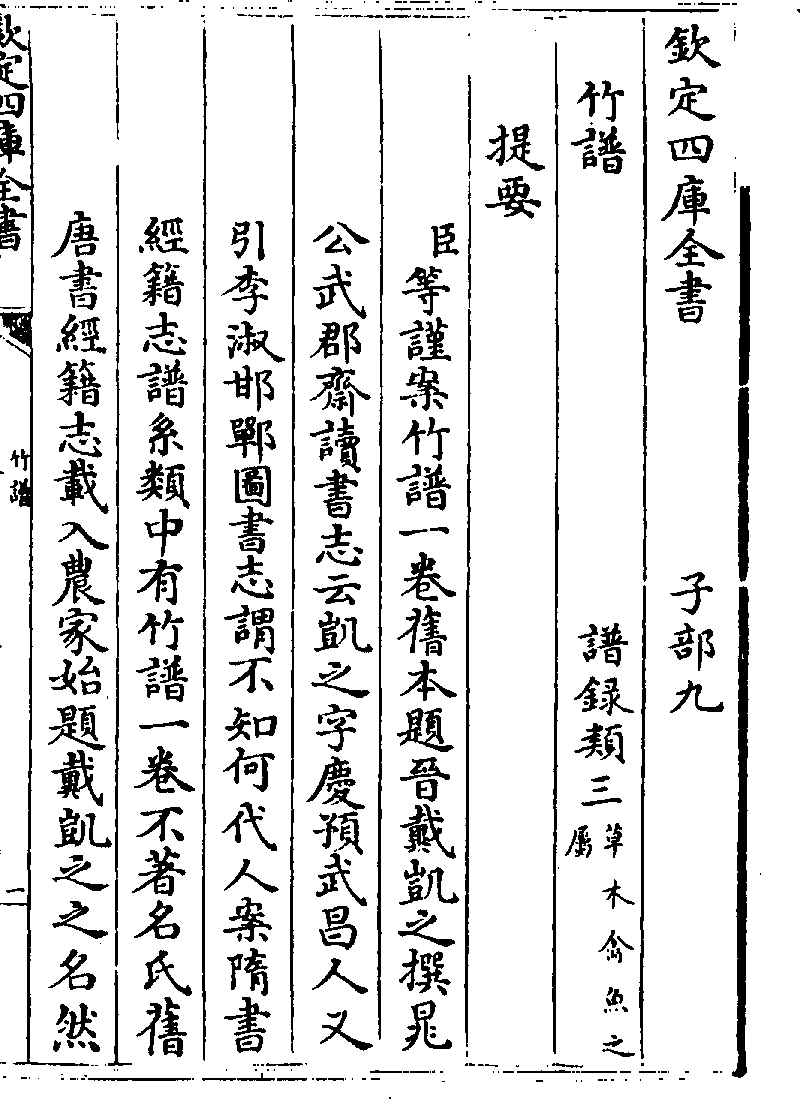 欽定四庫全書　子部九
竹譜　譜録類三草木禽魚之屬
提要
臣等謹案竹譜一卷舊本題晉戴凱之撰晁
公武郡齋讀書志云凱之字慶預武昌人又
引李淑邯鄲圖書志謂不知何代人案隋書
經籍志譜系類中有竹譜一卷不著名氏舊
唐書經籍志載入農家始題戴凱之之名然
欽定四庫全書
竹譜
一